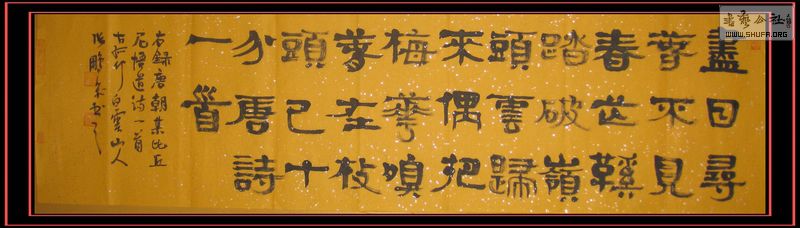 盡日尋
萅不見
春芒鞵
踏破嶺
頭雲歸
來偶把
梅華嗅
萅在枝
頭已十
分唐詩
一首
右録唐朝某比丘
尼悟道詩一首
白雲山人
書藝公社
WWW.SHUFA.ORG